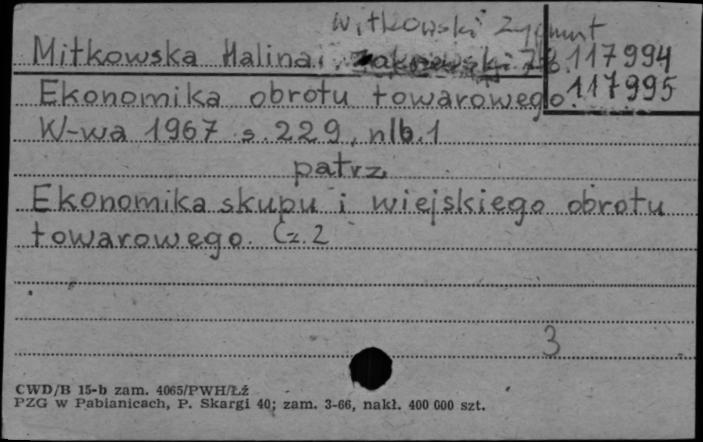 Witkowski Zygmunt
Mitkowska Halina, 117994
117995
Ekonomika obrotu towarowego.
W-wa 1967 s. 229, nlb. 1
patrz
Ekonomika skupu i wiejskiego obrotu
towarowego. Cz. 2
3
CWD/B 15-b zam. 4065/PWH/Łź
PZG w Pabianicach, P. Skargi 40; zam. 3-66, nakł. 400 000 szt.